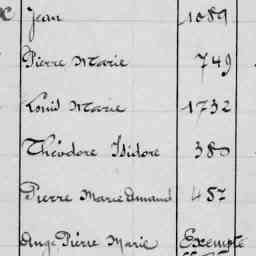 Jean 1089
Pierre Marie 749
Louis Marie 1732
Théodore Isidore 380
Pierre Marie Amand 457
Ange Pierre Marie Exempté